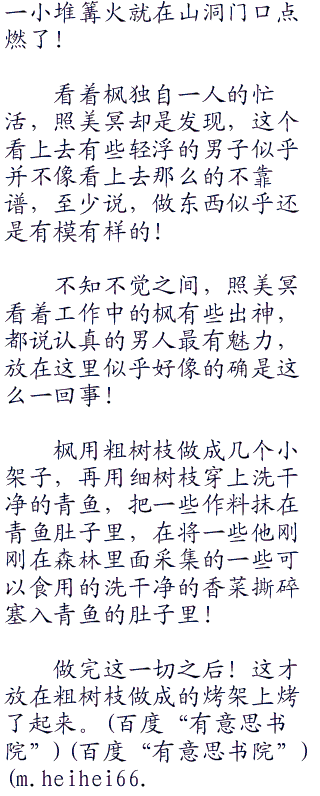 一小堆篝火就在山洞门口点
燃了！
看着枫独自一人的忙
活，照美冥却是发现，这个
看上去有些轻浮的男子似乎
并不像看上去那么的不靠
谱，至少说，做东西似乎还
是有模有样的！
不知不觉之间，照美冥
看着工作中的枫有些出神，
都说认真的男人最有魅力，
放在这里似乎好像的确是这
么一回事！
枫用粗树枝做成几个小
架子，再用细树枝穿上洗干
净的青鱼，把一些作料抹在
青鱼肚子里，在将一些他刚
刚在森林里面采集的一些可
以食用的洗干净的香菜撕碎
塞入青鱼的肚子里！
做完这一切之后！这才
放在粗树枝做成的烤架上烤
了起来。(百度“有意思书
院”)(百度“有意思书院”)
(m.heihei66.